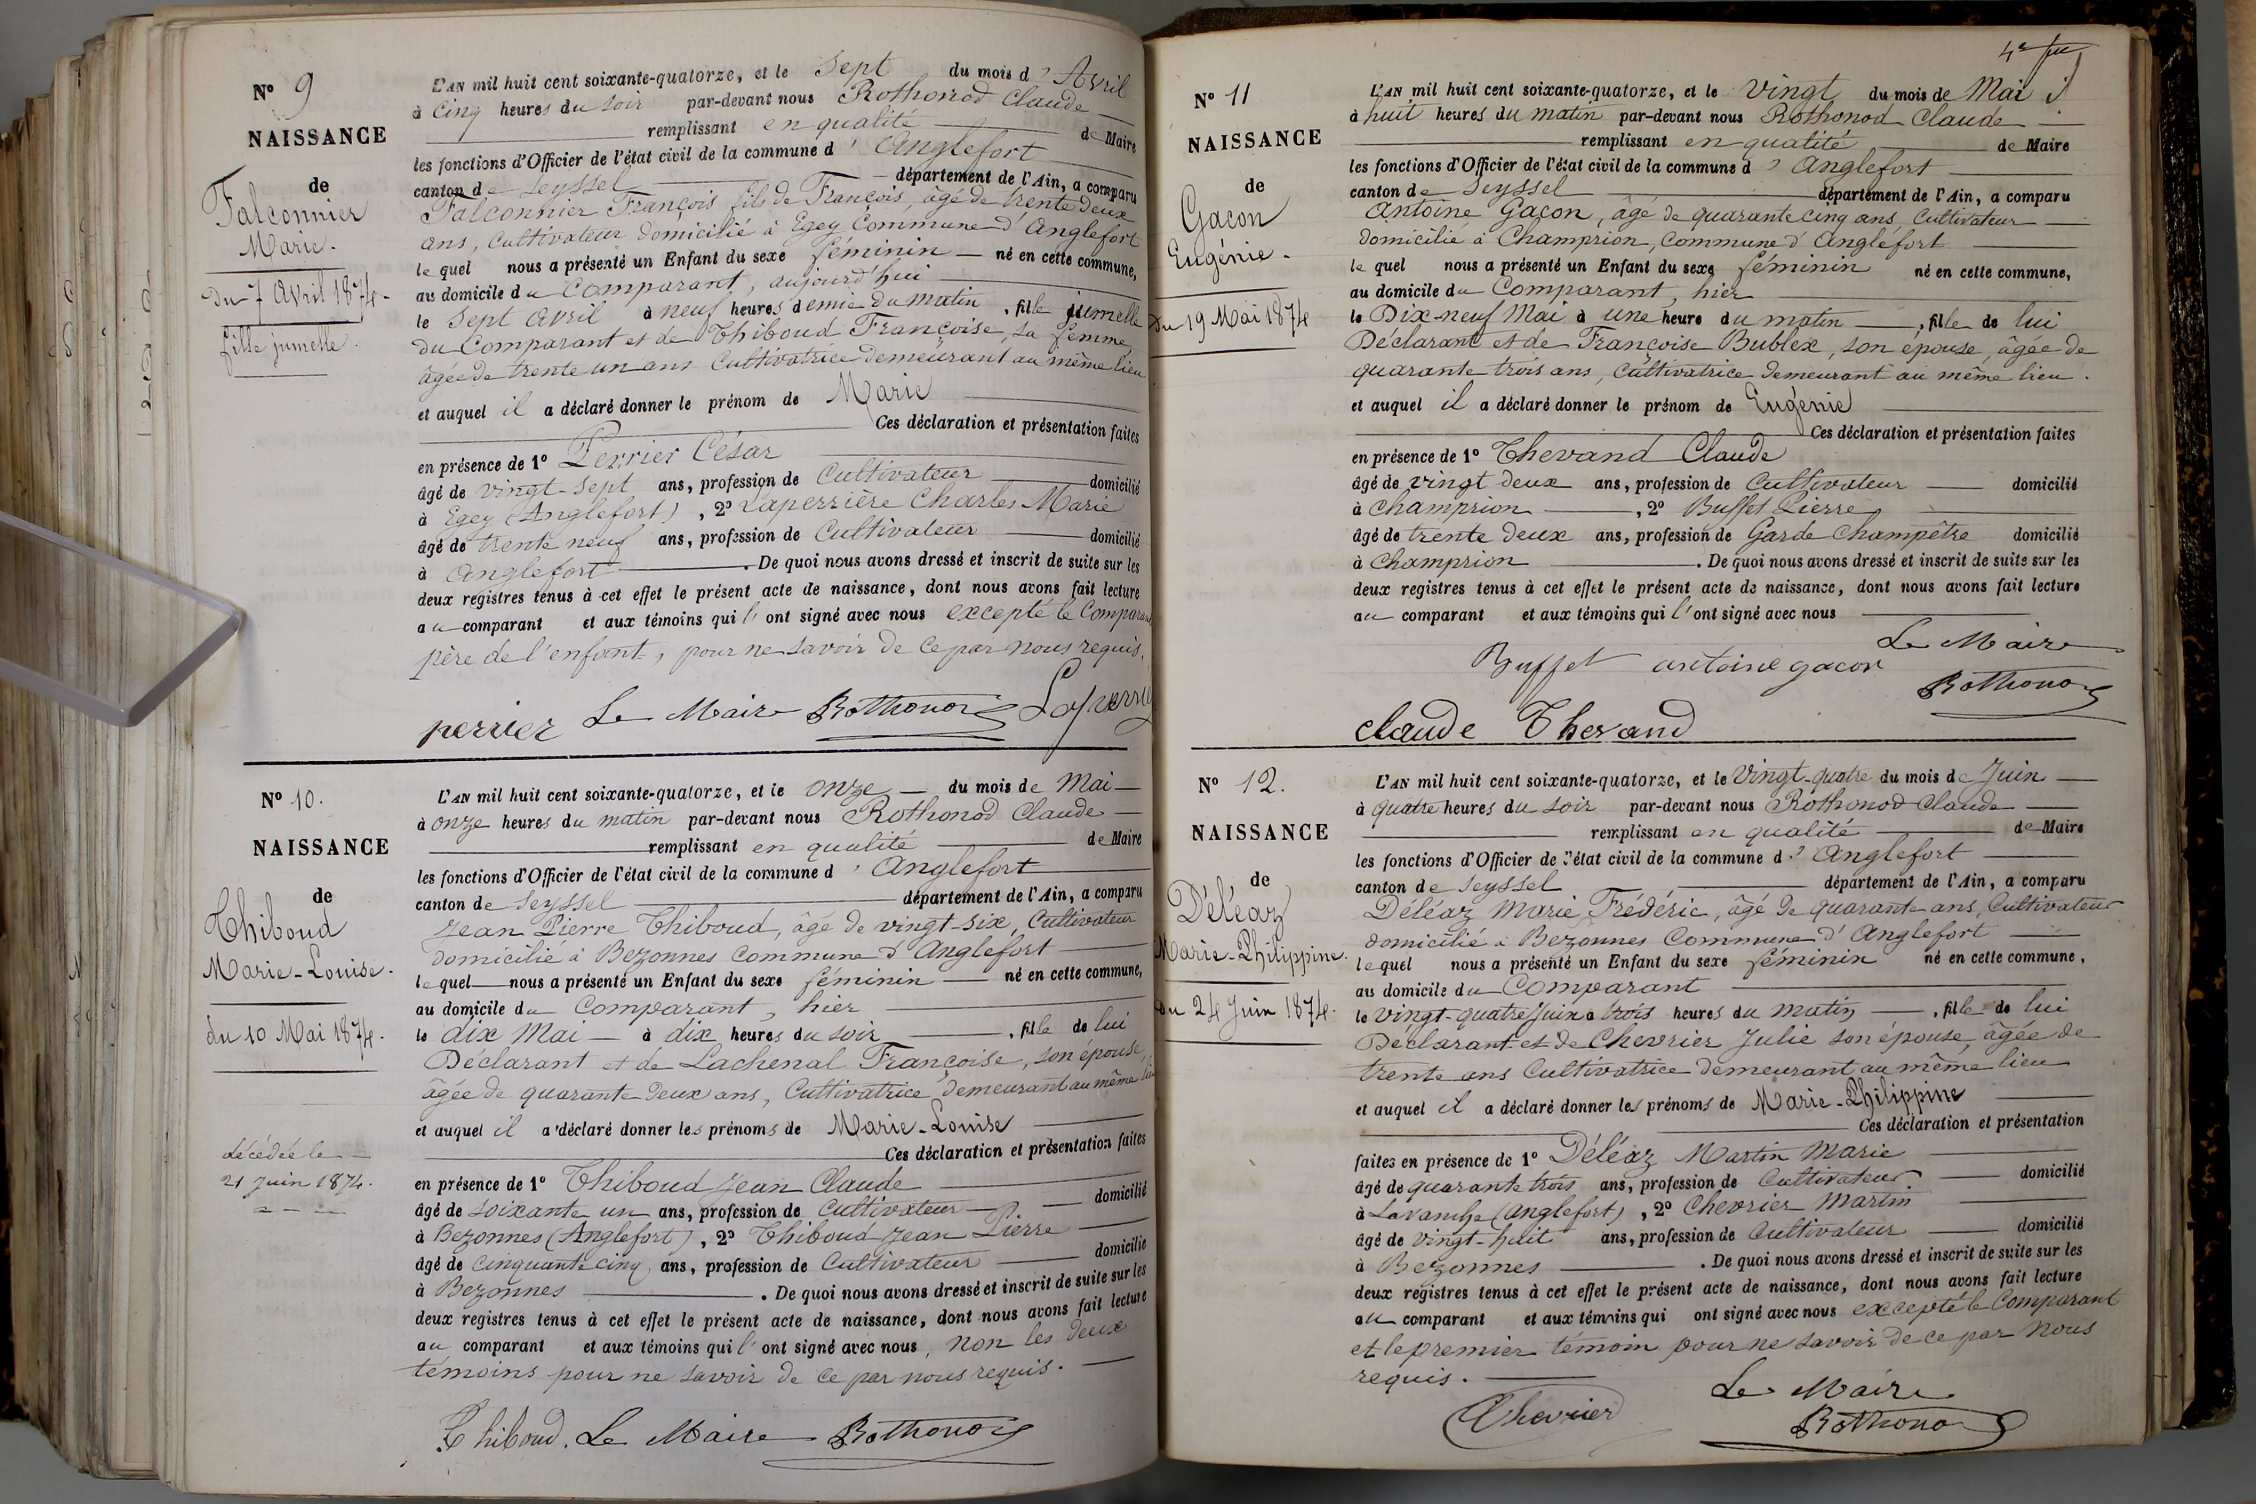 N° 9
NAISSANCE
de
Falconnier
Marie.
du 7 Avril 1874.
fille jumelle.
L'AN mil huit cent soixante-quatorze, et le Sept du mois d'Avril
à Cinq heures du soir par-devant nous Rothonod Claude
remplissant en qualité de Maire
les fonctions d'Officier de l'état civil de la commune d'Anglefort
canton de Seyssel département de l'Ain, a comparu
Falconnier François fils de François, âgé de trente deux
ans, Cultivateur domicilié à Egey Commune d'Anglefort
lequel nous a présenté un Enfant du sexe féminin né en cette commune,
au domicile du Comparant, aujourd'hui
le Sept Avril à neuf heures demie du matin, fille jumelle
du Comparant et de Thiboud Françoise, sa femme
âgée de trente un ans Cultivatrice demeurant au même lieu
et auquel il a déclaré donner le prénom de Marie
Ces déclaration et présentation faites
en présence de 1° Perrier César
âgé de vingt-sept ans, profession de Cultivateur domicilié
à Egey (Anglefort), 2° Laperrière Charles Marie
âgé de trente neuf ans, profession de Cultivateur domicilié
à Anglefort. De quoi nous avons dressé et inscrit de suite sur les
deux registres tenus à cet effet le présent acte de naissance, dont nous avons fait lecture
au comparant et aux témoins qui l'ont signé avec nous excepté le Comparant
père de l'enfant, pour ne savoir de ce par nous requis.
perrier Le Maire Rothonod Laperrie
N° 10.
NAISSANCE
de
Thiboud
Marie-Louise.
du 10 Mai 1874.
décédée le
21 Juin 1874.
L'AN mil huit cent soixante-quatorze, et le onze du mois de Mai
à onze heures du matin par-devant nous Rothonod Claude
remplissant en qualité de Maire
les fonctions d'Officier de l'état civil de la commune d'Anglefort
canton de Seyssel département de l'Ain, a comparu
Jean Pierre Thiboud, âgé de vingt-six, Cultivateur
domicilié à Bezonnes Commune d'Anglefort
lequel nous a présenté un Enfant du sexe féminin né en cette commune,
au domicile du Comparant, hier
le dix Mai à dix heures du soir, fille de lui
Déclarant et de Lachenal Françoise, son épouse,
âgée de quarante deux ans, Cultivatrice demeurant au même lieu
et auquel il a déclaré donner les prénoms de Marie-Louise
Ces déclaration et présentation faites
en présence de 1° Thiboud Jean Claude
âgé de soixante un ans, profession de Cultivateur domicilié
à Bezonnes (Anglefort), 2° Thiboud Jean Pierre
âgé de cinquante cinq ans, profession de Cultivateur domicilié
à Bezonnes. De quoi nous avons dressé et inscrit de suite sur les
deux registres tenus à cet effet le présent acte de naissance, dont nous avons fait lecture
au comparant et aux témoins qui l'ont signé avec nous, non les deux
témoins pour ne savoir de ce par nous requis.
Thiboud. Le Maire Rothonod
N° 11
NAISSANCE
de
Gacon
Eugénie.
du 19 Mai 1874
L'AN mil huit cent soixante-quatorze, et le vingt du mois de Mai
à huit heures du matin par-devant nous Rothonod Claude
remplissant en qualité de Maire
les fonctions d'Officier de l'état civil de la commune d'Anglefort
canton de Seyssel département de l'Ain, a comparu
Antoine Gacon, âgé de quarante cinq ans, Cultivateur
domicilié à Champrion, Commune d'Anglefort
lequel nous a présenté un Enfant du sexe féminin né en cette commune,
au domicile du Comparant, hier
le Dix-neuf Mai à une heure du matin, fille de lui
Déclarant et de Françoise Bublex, son épouse, âgée de
quarante trois ans, Cultivatrice demeurant au même lieu.
et auquel il a déclaré donner le prénom de Eugénie
Ces déclaration et présentation faites
en présence de 1° Thevand Claude
âgé de vingt deux ans, profession de Cultivateur domicilié
à Champrion, 2° Buffet Pierre
âgé de trente deux ans, profession de Garde Champêtre domicilié
à Champrion. De quoi nous avons dressé et inscrit de suite sur les
deux registres tenus à cet effet le présent acte de naissance, dont nous avons fait lecture
au comparant et aux témoins qui l'ont signé avec nous
Le Maire
Buffet antoine gacon
Rothonod
claude Thevand
N° 12.
NAISSANCE
de
Déléaz
Marie-Philippine.
du 24 Juin 1874.
L'AN mil huit cent soixante-quatorze, et le Vingt-quatre du mois de Juin
à quatre heures du soir par-devant nous Rothonod Claude
remplissant en qualité de Maire
les fonctions d'Officier de l'état civil de la commune d'Anglefort
canton de Seyssel département de l'Ain, a comparu
Déléaz Marie Frédéric, âgé de quarante ans, Cultivateur
domicilié à Bezonnes Commune d'Anglefort
lequel nous a présenté un Enfant du sexe féminin né en cette commune,
au domicile du Comparant
le vingt-quatre Juin à trois heures du matin, fille de lui
Déclarant et de Chevrier Julie son épouse, âgée de
trente ans Cultivatrice demeurant au même lieu
et auquel il a déclaré donner les prénoms de Marie-Philippine
Ces déclaration et présentation
faites en présence de 1° Déléaz Martin Marie
âgé de quarante trois ans, profession de Cultivateur. domicilié
à Lavanche (Anglefort), 2° Chevrier Martin
âgé de vingt-huit ans, profession de Cultivateur domicilié
à Bezonnes. De quoi nous avons dressé et inscrit de suite sur les
deux registres tenus à cet effet le présent acte de naissance, dont nous avons fait lecture
au comparant et aux témoins qui ont signé avec nous excepté le Comparant
et le premier témoin pour ne savoir de ce par nous
requis.
Le Maire
Chevrier Rothonod